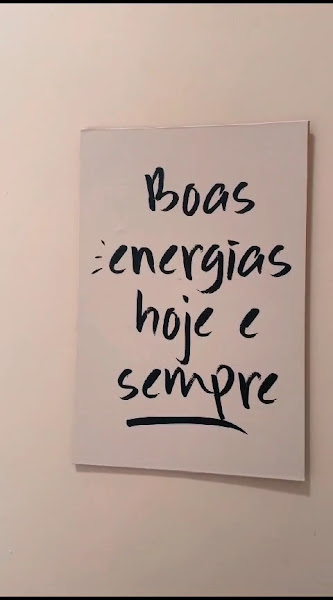 Boas
energias
hoje e
sempre